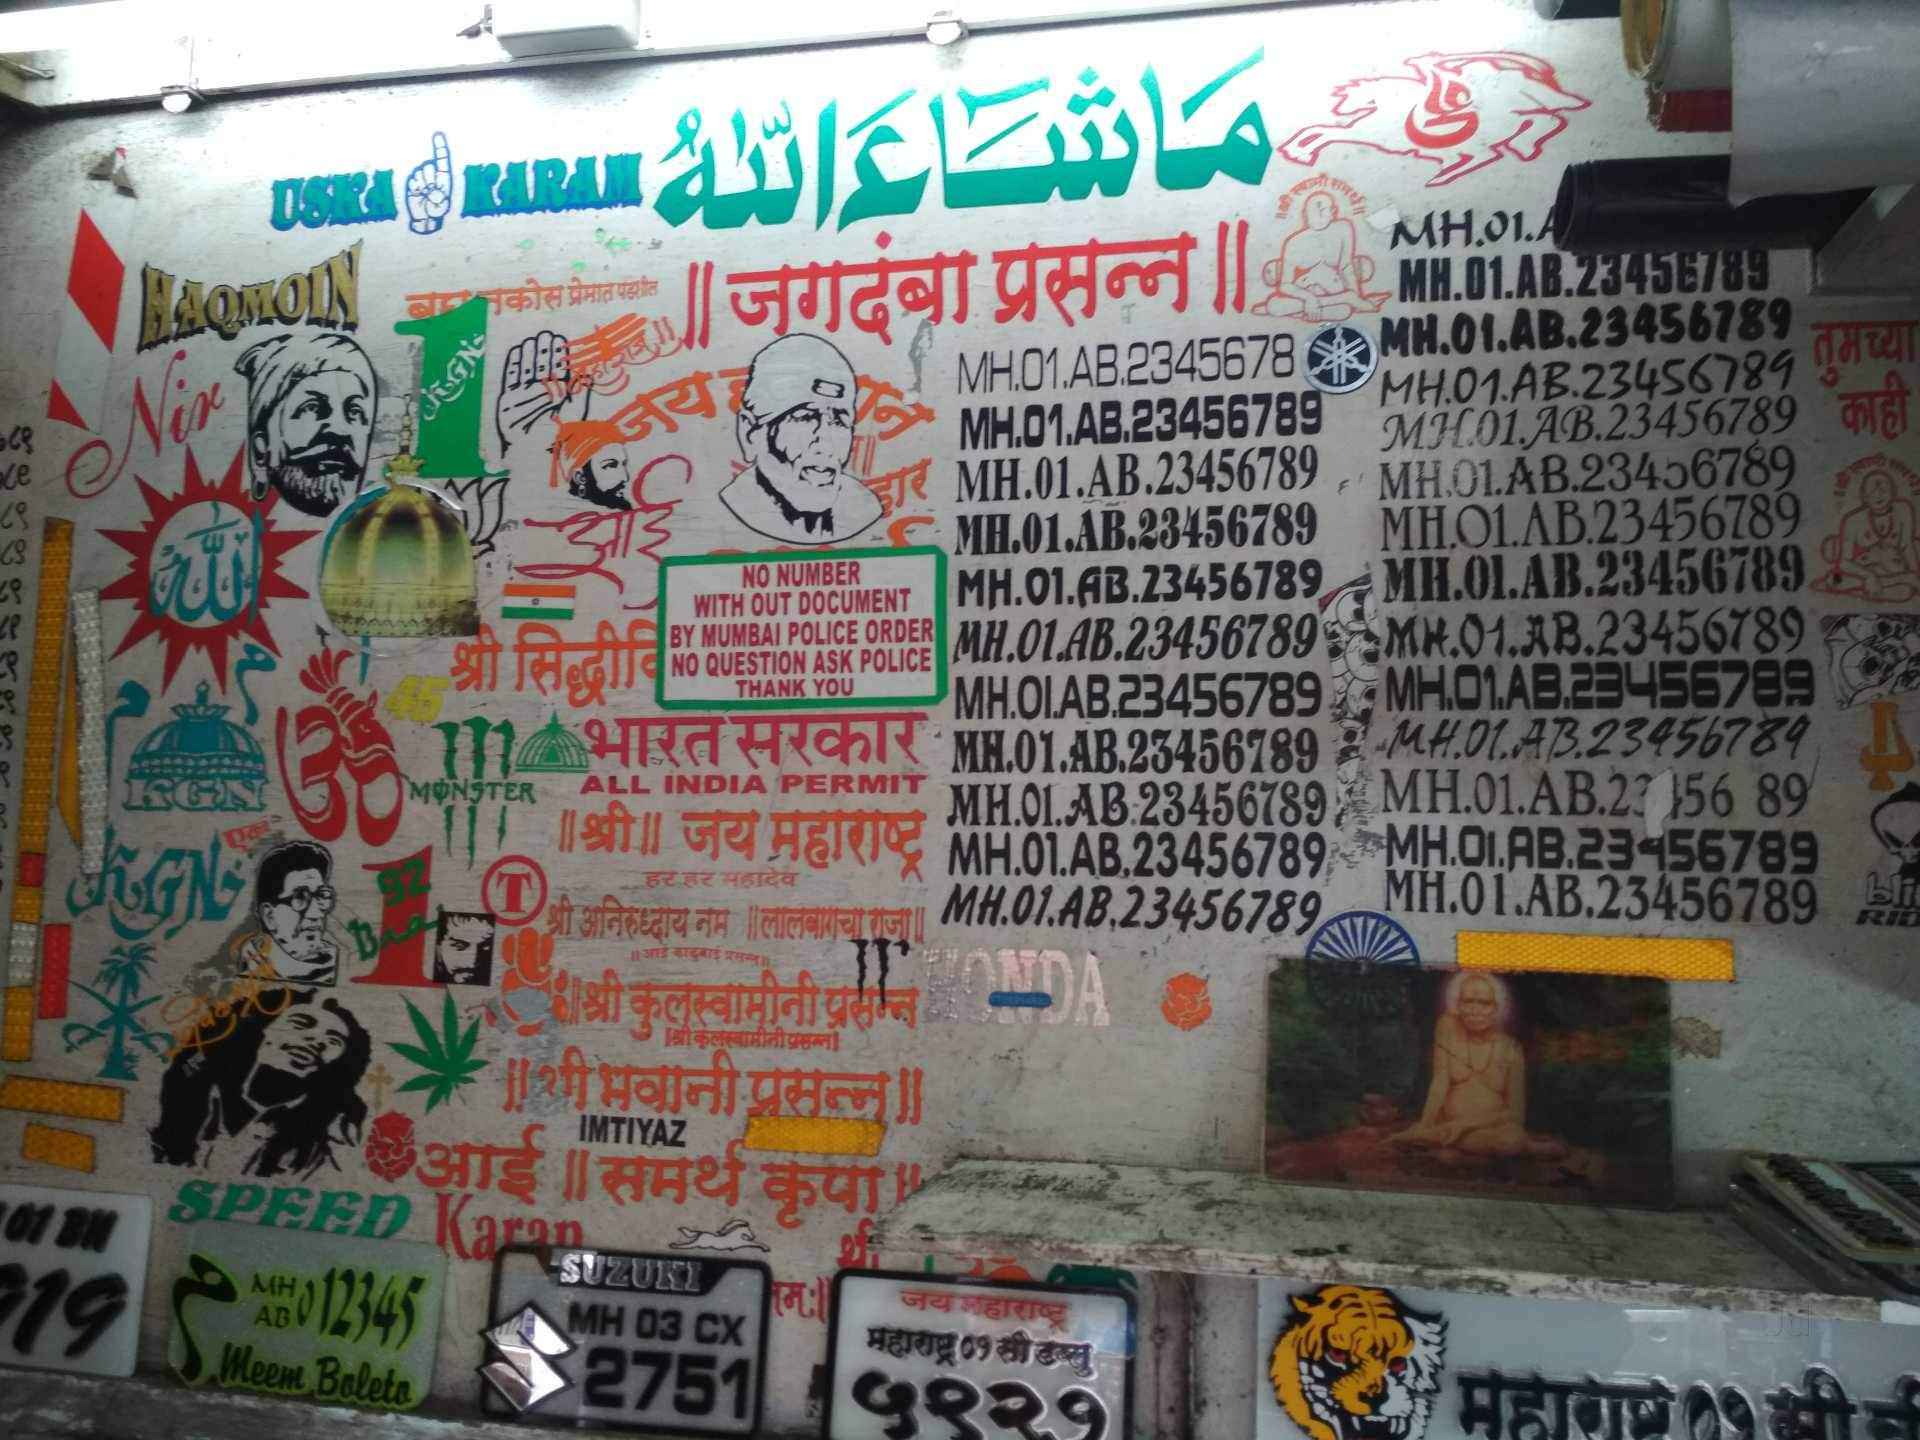 USKA KARAM
مَاشَاءَ اللّٰهُ
HAQMOIN
॥ जगदंबा प्रसन्न ॥
॥ श्री स्वामी समर्थ ॥
Nix
1
KGN
जय
आई
الله
NO NUMBER
WITH OUT DOCUMENT
BY MUMBAI POLICE ORDER
NO QUESTION ASK POLICE
THANK YOU
श्री
भारत सरकार
ALL INDIA PERMIT
45
MONSTER
KGN
॥श्री॥ जय महाराष्ट्र
हर हर महादेव
KGN
92
1
T
श्री अनिरुध्दाय नम ॥लालबागचा राजा॥
॥श्री कुलस्वामीनी प्रसन्न
॥श्री कुलस्वामीनी प्रसन्न॥
भवानी प्रसन्न॥
IMTIYAZ
आई ॥ समर्थ कृपा
SPEED
Karan
MH.01.AB.2345678
MH.01.AB.23456789
MH.01.AB.23456789
MH.01.AB.23456789
MH.01.AB.23456789
MH.01.AB.23456789
MH.01.AB.23456789
MH.01.AB.23456789
MH.01.AB.23456789
MH.01.AB.23456789
MH.01.AB.23456789
MH.01.A
MH.01.AB.23456789
MH.01.AB.23456789
MH.01.AB.23456789
MH.01.AB.23456789
MH.01.AB.23456789
MH.01.AB.23456789
MH.01.AB.23456789
MH.01.AB.23456789
MH.01.AB.23456789
MH.01.AB.23456789
MH.01.AB.23 56 89
MH.01.AB.23456789
MH.01.AB.23456789
तुमच्या
काही
HONDA
01 BH
919
م
MH
AB 012345
Meem Boleto
SUZUKI
MH 03 CX
2751
जय महाराष्ट्र
महाराष्ट्र ०१ सी डब्लु
५९२१
महाराष्ट्र ०१